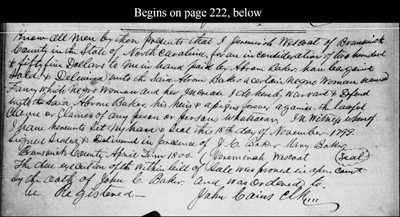 Begins on page 222, below
Know all Men by these presents that I Jeremiah Wescoat of Brunswick
County in the State of North Carolina, for an in consideration of two hundred
& fifty five Dollars to me in hand paid by Abrom Baker, have bargain
Sold & Delivered unto the Said Abrom Baker a certain Negroe Woman named
Fanny which Negroe Woman and her I do hereby Warrant & Defend
unto the Said Abrom Baker, his heirs & assigns forever against the lawful
Claime or Claimes of any person or persons whatsoever In Witness whereof
I have hereunto Set my hand & Seal this 18th day of November 1799.
Signed Sealed & Delivered in presence of J. C. Baker Mary Baker
Brunswick County, April Term 1800. Jeremiah Wescoat (Seal)
The due execution of the within bill of Sale was proved in open Court
by the oath of John C. Baker and was Ordered to
be Registered — John Cains Clk